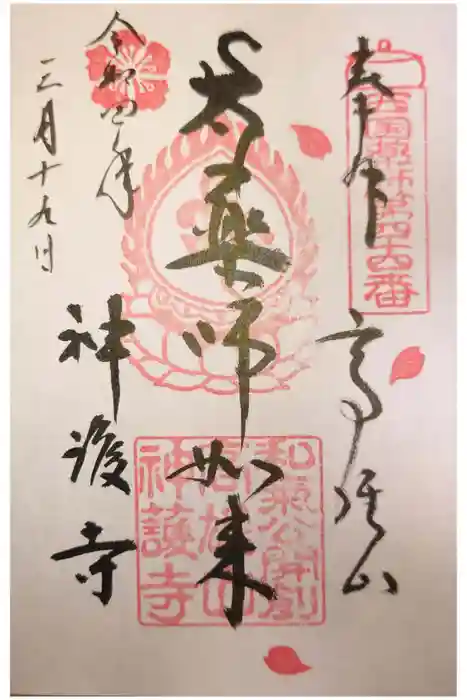 奉拝
西国薬師第四十四番
高雄山
大薬師如来
和気公開創
高雄山
神護寺
令和四年
三月十九日
神護寺